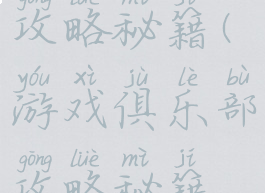 gōng lüè mì jí
攻略秘籍(
yóu xì jù lè bù
游戏俱乐部
gōng lüè mì jí
攻略秘籍